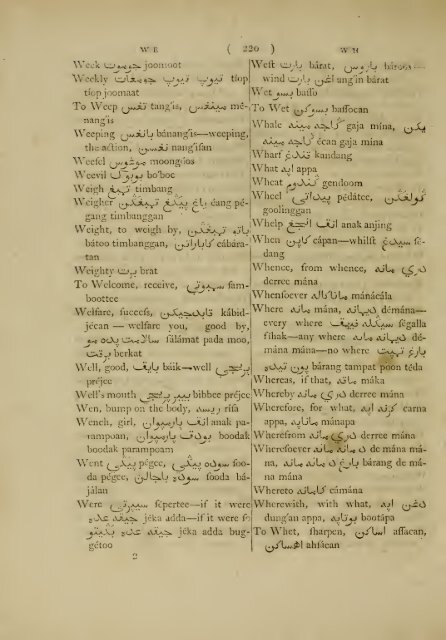 W E ( 220 ) W H
Week جوموت joomoot
Weekly تيوب تيوب جومعات tíop
tíop joomaat
To Weep تڠيس tang'is, مينڠيس mé-
nang'is
Weeping بانڠيس bánang'is—weeping,
the action, نڠيسن nang'isan
Weefel موڠوس moongòos
Weevil بوبوق bo'boc
Weigh تيمبڠ timbang
Weigher éang pé-
gang timbanggan
Weight, to weigh by, باتو تيمبڠن
bátoo timbanggan, cábára-
tan
Weighty برت brat
To Welcome, receive, سمبوتي sam-
boottee
Welfare, succefs, kábid-
jécan — welfare you, good by,
سلامت پد مو sálámat pada moo,
بركت berkat
Well, good, بايك báik—well
préjee
Well's month bibbee préjee
Wen, bump on the body, ريس risa
Wench, girl, انق پارمپوان anak pa-
rampoan, بودق پارمپوان boodak
boodak parampoam
Went پيڬي pégee, سوده پيڬي soo-
da pégee, سوده باجالن sooda bá-
jálan
Were سپرتي sepertee—if it were
جيك اد jéka adda—if it were so
jéka adda bug-
gétoo
2
West بارت bárat, bároos—
wind اڠن بارت ang'in bárat
Wet باسو basso
To Wet باسوكن bassocan
Whale ڬاجه مينه gaja mína,
écan gaja mina
Wharf kandang
What اپ appa
Wheat ڬندوم gendoom
Wheel پيداتي pédátee,
goolinggan
Whelp انق انجڠ anak anjing
When كاپن cápan—whilst سيدڠ sé-
dang
Whence, from whence, دري مان
derree mána
Whensoever مانكال mánácála
Where مان mána, دمان démána—
every where ségalla
síhak—any where دمان مان dé-
mána mána—no where
bárang tampat poon téda
Whereas, if that, مك máka
Whereby دري مان derree mána
Wherefore, for what, كرن اپ carna
appa, مناپ mánapa
Wherefrom دري مان derree mána
Wheresoever د مان مان de mána má-
na, بارڠ د مان مان bárang de má-
na mána
Whereto كمان cúmána
Wherewith, with what, دڠن اپ
dung'an appa, بوتاپ bootápa
To Whet, sharpen, اساكن assacan,
ahsácan